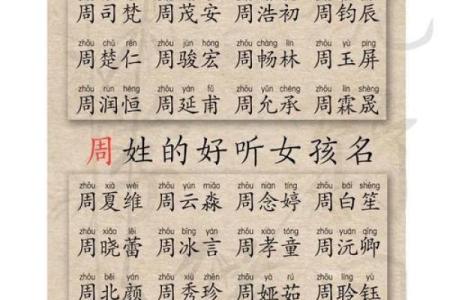 zhōu sī fán zhōu mào ān zhōu hào chū zhōu jūn chén
周司梵 周茂安 周浩初 周钧辰
zhōu chǔ rén zhōu jùn hóng zhōu chàng lín zhōu yù píng
周楚仁 周骏宏 周畅林 周玉屏
zhōu rùn héng zhōu yán fǔ zhōu yǔn chéng zhōu lín shèng
周润恒 周延甫 周允承 周霖晟
周姓的好听女孩名
zhōu xià wéi zhōu yún miǎo zhōu niàn tíng zhōu bái shēng
周夏维 周云淼 周念婷 周白笙
zhōu xiǎo lěi zhōu bīng yán zhōu xiào tóng zhōu yuán qīng
周晓蕾 周冰言 周孝童 周沅卿
zhōu běi yán zhōu xiù zhēn zhōu yà rú zhōu líng yù
周北颜 周秀珍 周娅茹 周聆钰